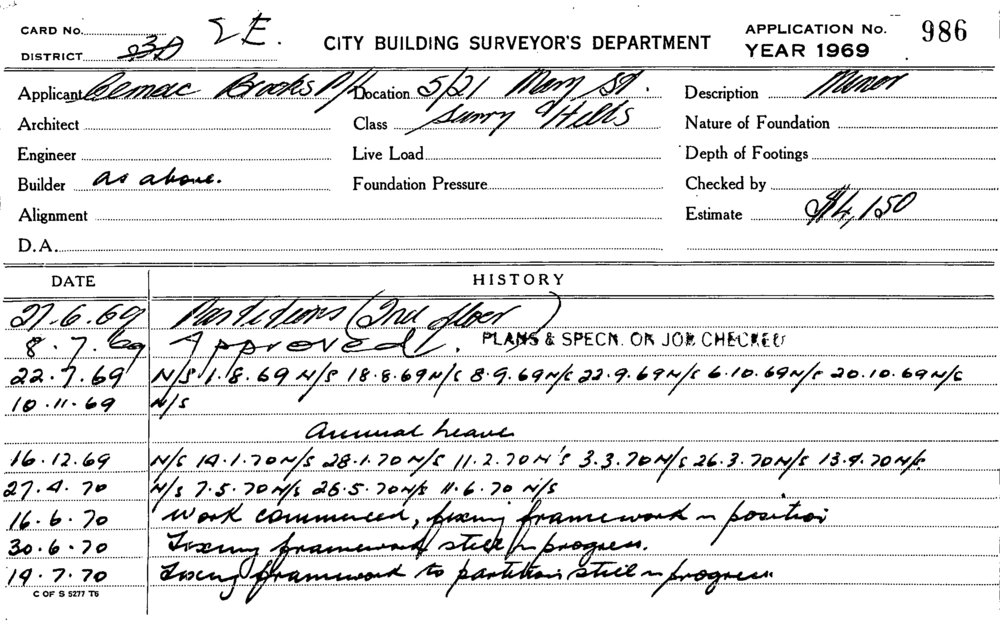 CARD No. LE. CITY BUILDING SURVEYOR'S DEPARTMENT APPLICATION No. 986
DISTRICT 3D YEAR 1969
Applicant Brooks P/L Location 5/21 Mary St. Description Minor
Architect Class Surry Hills Nature of Foundation
Engineer Live Load Depth of Footings
Builder as above. Foundation Pressure Checked by
Alignment Estimate $4,150
D.A.
DATE HISTORY
27.6.69 Partitions (2nd floor)
8.7.69 Approved. PLANS & SPECN. ON JOB CHECKED
22.7.69 N/S 1.8.69 N/S 18.8.69 N/S 8.9.69 N/S 22.9.69 N/S 6.10.69 N/S 20.10.69 N/S
10.11.69 N/S
Annual Leave
16.12.69 N/S 14.1.70 N/S 28.1.70 N/S 11.2.70 N/S 3.3.70 N/S 26.3.70 N/S 13.4.70 N/S
27.4.70 N/S 7.5.70 N/S 25.5.70 N/S 11.6.70 N/S
16.6.70 Work commenced, fixing framework in position
30.6.70 Fixing framework still in progress.
14.7.70 Fixing framework to partitions still in progress
C OF S 5277 T6